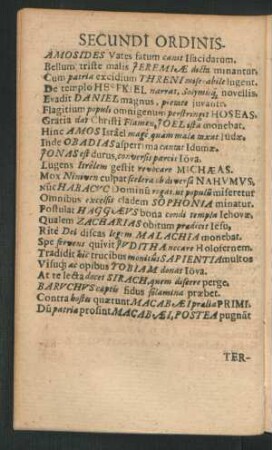 SECUNDI ORDINIS.
AMOSIDES Vates fatum canit Isacidarum.
Bellum triste malis JEREMIÆ dicta minantur.
Cum patria excidium THRENI miserabile lugent.
De templo HESEKIEL narrat, Solymisq; novellis.
Evadit DANIEL magnus, pietate juvante.
Flagitium populi omnigenum perstringit HOSEAS.
Gratia dat Christi Flamen, JOEL ista monebat.
Hinc AMOS Israel magi quàm mala taxat Iudæ.
Inde OBADIAS asperrima cantat Idumææ.
JONAS est durus, conversis parcit Iova.
Lugens Israëlem gestit revocare MICHÆAS.
Mox Niniven culpat scelera ob diversa NAHVMVS.
Nũc HABACVC Dominũ rogat, ut populũ miseretur
Omnibus excelsis cladem SOPHONIA minatur.
Postulat HAGGÆVS bona condi templa Iehovæ.
Qualem ZACHARIAS obitum prædicet Iesu,
Ritè Dei discas legem MALACHIA monebat.
Spe fervens quivit JVDITHA necare Holofernem.
Tradidit hîc trucibus monitus SAPIENTIA multos
Visuq; ac opibus TOBIAM donat Iova.
At te lecta docet SIRACH, quem discere perge.
BARVCHVS captis fidus solamina præbet.
Contra hostes quærunt MACABÆI prælia PRIMI.
Dũ patria prosint MACABÆI, POSTEA pugnãt
TER-